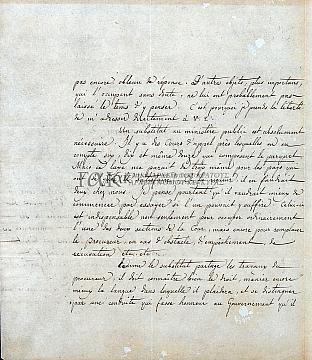 pas encore obtenu de réponse. D'autres objets, plus importans,
qui l'occupent sans doute, ne lui ont probablement pas
laissé le tems d'y penser. C'est pourquoi je prends la liberté
de m'adresser directement à V. E.
Un substitut au ministère public est absolument
nécessaire. Il y a des Cours d'appel près lesquelles on en
compte six, dix et même douze qui composent le parquet
Mais ce luxe me paroit pour les pays qui
il en faudrait
deux chez nous. Je pense pourtant qu'il vaudrait mieux de
commencer par essayer si l'un pourrait y suffire. Celui-ci
est indispensable non seulement pour occuper ordinairement
l'une des deux sections de la Cour, mais encore pour remplacer
le procureur, en cas d'obstacle, d'empêchement, de
récusation etc. etc.
Comme le substitut partage les travaux du
procureur, il doit connaître bien le droit, manier encore
mieux la langue dans laquelle il plaidera, et se distinguer
par une conduite qui fasse honneur au Gouvernement qu'il